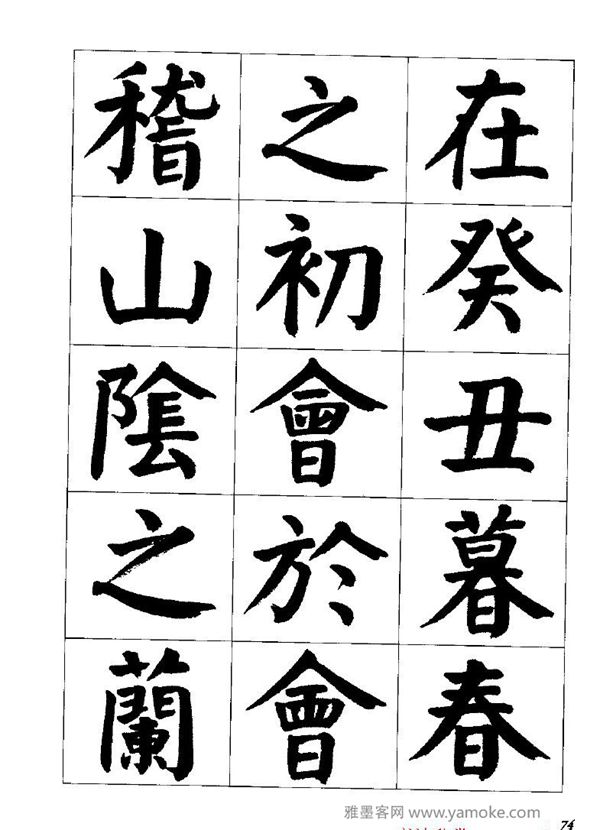 在癸丑暮春
之初會於會
稽山陰之蘭
雅墨客网 www.yamoke.com
74